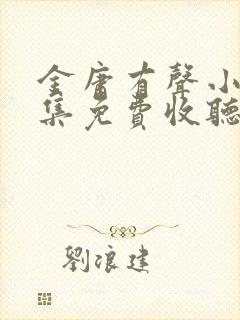 金庸有聲小
集免費收聽
劉浪建